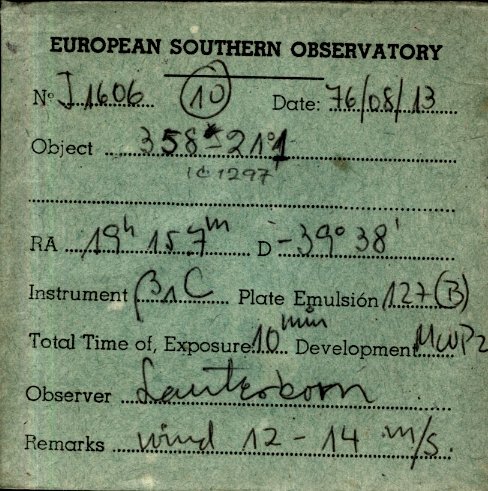 EUROPEAN SOUTHERN OBSERVATORY
Nº J1606 10 Date: 76/08/13
Object 358-21°1
IC 1297
RA 19h 15.7m D -39° 38'
Instrument β1C Plate Emulsión 127(B)
Total Time of, Exposure 10 min Development MWP2
Observer Lauterborn
Remarks wind 12-14 m/s.